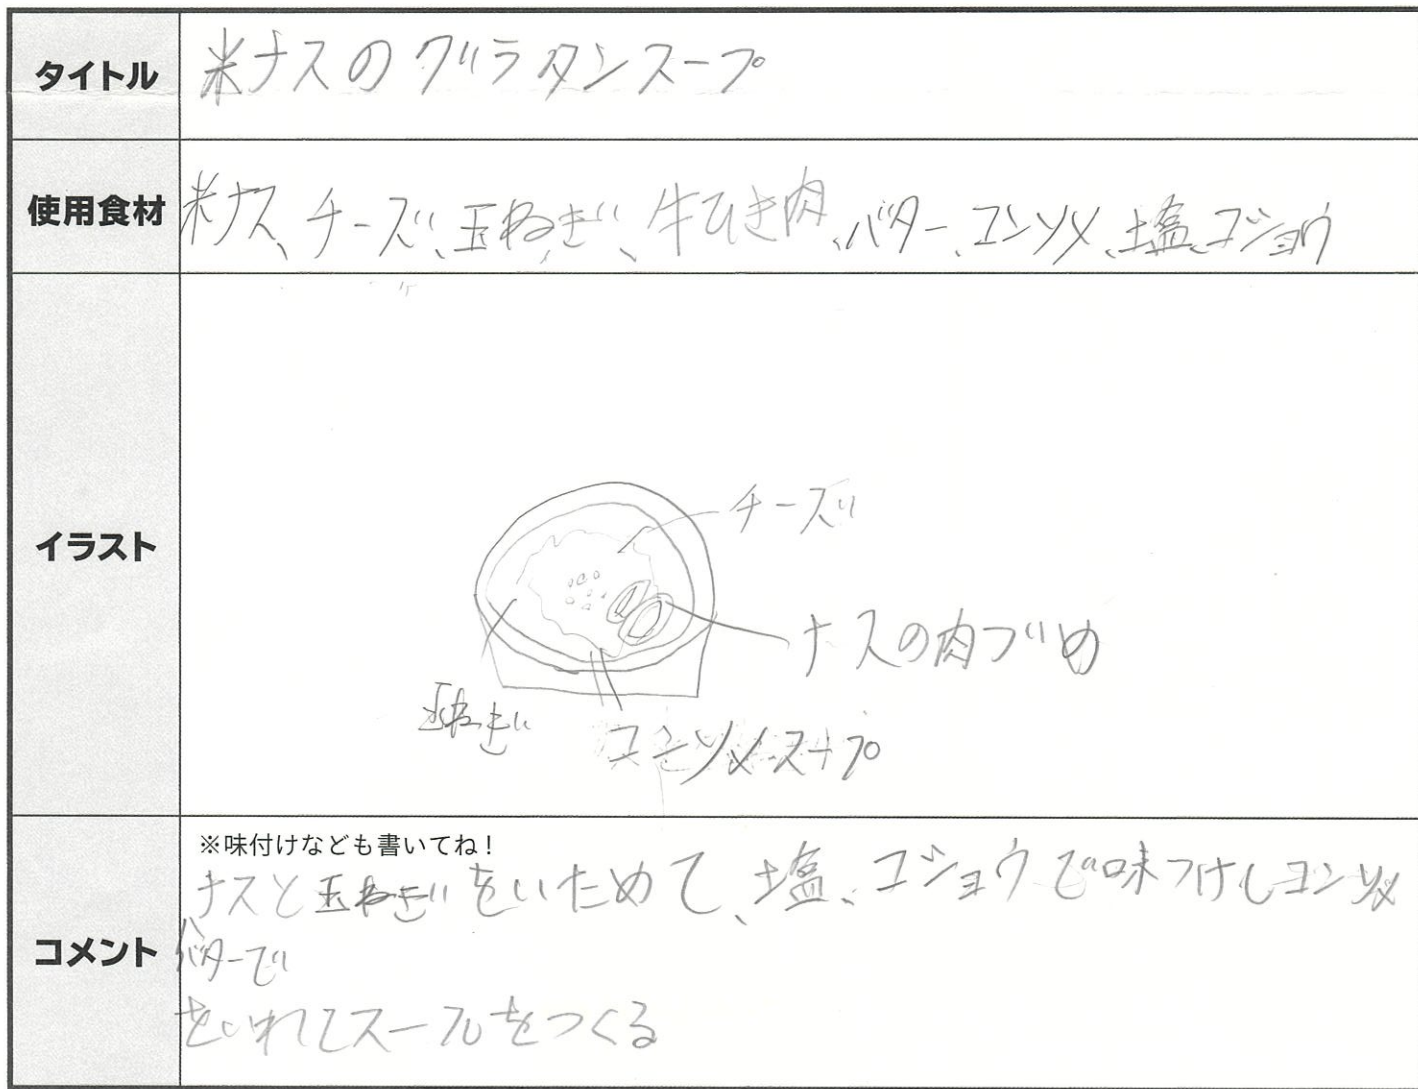 タイトル
米ナスのグラタンスープ
使用食材
米ナス、チーズ、玉ねぎ、牛ひき肉、バター、コンソメ、塩、コショウ
イラスト
チーズ
ナスの肉づめ
玉ねぎ
コンソメスープ
コメント
※味付けなども書いてね!
ナスと玉ねぎをいためて、塩、コショウで味つけしコンソメ
バターで
をいれてスープをつくる